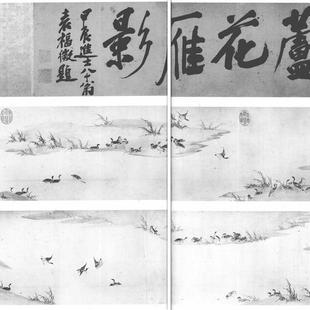 蘆花雁影
甲辰進士八十翁
袁福徵題